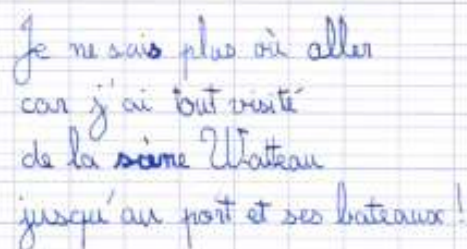 Je ne sais plus où aller
car j'ai tout visité
de la scène Watteau
jusqu'au port et ses bateaux !